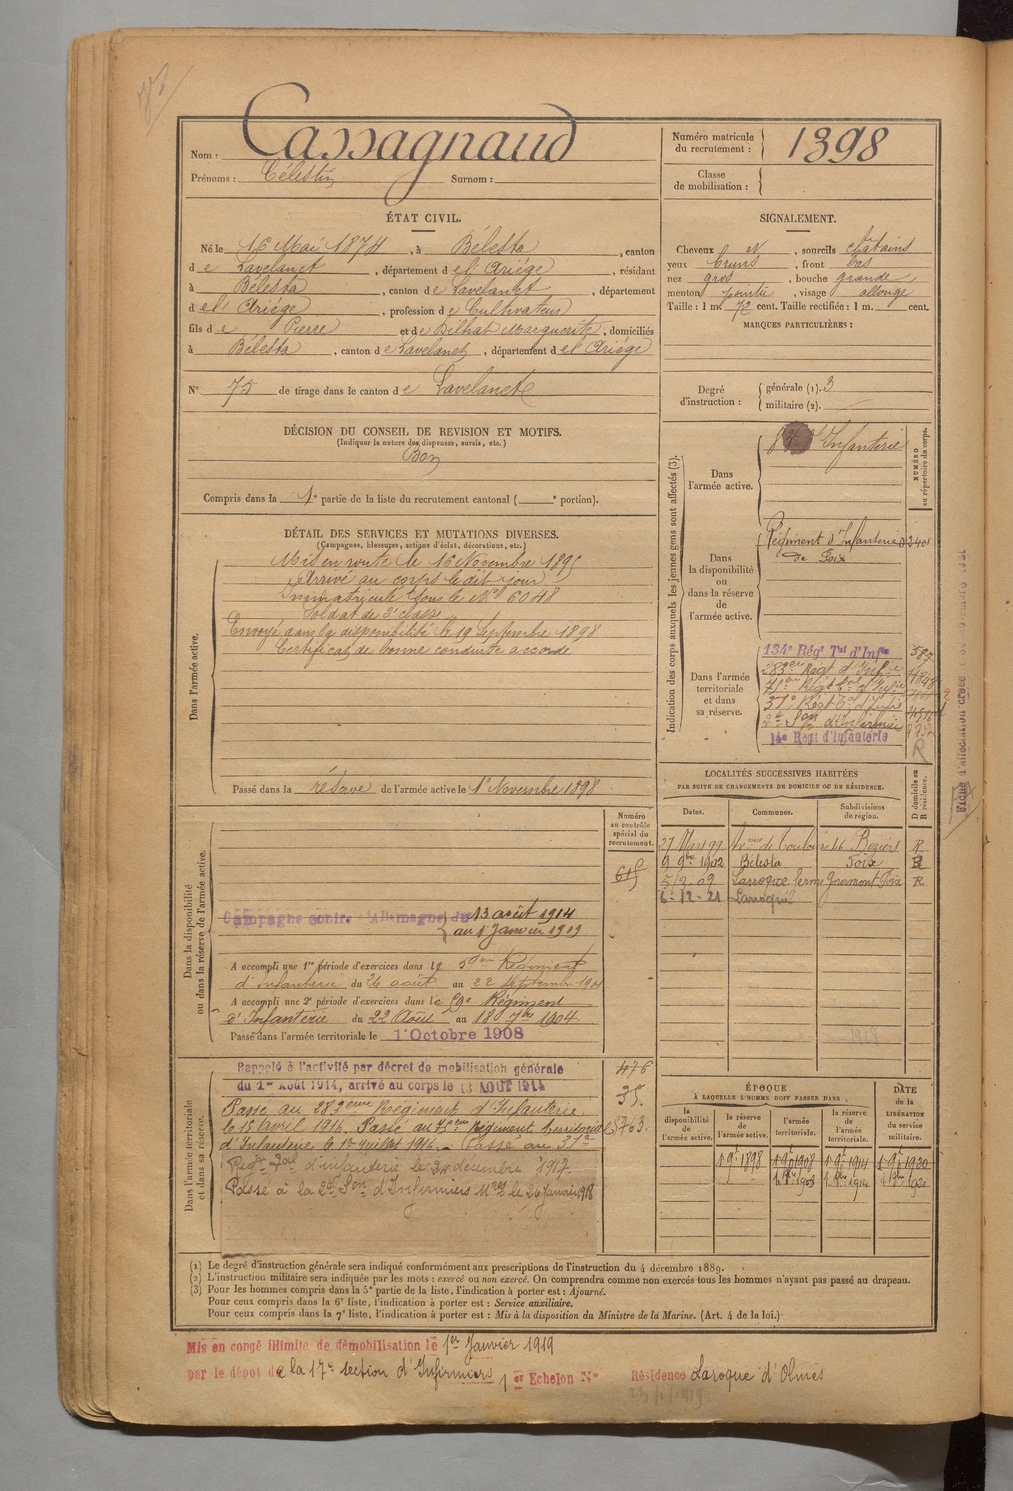 Nom : Cassagnaud
Prénoms : Célestin Surnom :
Numéro matricule du recrutement : 1398
Classe de mobilisation :
ÉTAT CIVIL.
Né le 16 Mai 1874, à Bélesta, canton
de Lavelanet, département de l'Ariége, résidant
à Bélesta, canton de Lavelanet, département
de l'Ariége, profession de Cultivateur
fils de Pierre et de Dilhat Marguerite, domiciliés
à Bélesta, canton de Lavelanet, département de l'Ariége
N° 75 de tirage dans le canton de Lavelanet
SIGNALEMENT.
Cheveux et, sourcils châtains
yeux bruns, front bas
nez gros, bouche grande
menton pointu, visage allongé
Taille : 1 m. 72 cent. Taille rectifiée : 1 m. cent.
MARQUES PARTICULIÈRES :
Degré d'instruction : générale (1). 3
militaire (2).
DÉCISION DU CONSEIL DE REVISION ET MOTIFS.
(Indiquer la nature des dispenses, sursis, etc.)
Bon
Compris dans la 1e partie de la liste du recrutement cantonal ( e portion).
DÉTAIL DES SERVICES ET MUTATIONS DIVERSES.
(Campagnes, blessures, actions d'éclat, décorations, etc.)
Dans l'armée active.
Mis en route le 16 Novembre 1895
Arrivé au corps le dit jour
Immatriculé sous le No 6048
Soldat de 2e classe
Envoyé dans la disponibilité le 19 Septembre 1898
Certificat de bonne conduite accordé
Passé dans la réserve de l'armée active le 1er Novembre 1898
Indication des corps auxquels les jeunes gens sont affectés (3).
NUMÉRO au répertoire du corps.
Dans l'armée active.
Infanterie
Dans la disponibilité ou dans la réserve de l'armée active.
Régiment d'Infanterie
de Foix
Dans l'armée territoriale et dans sa réserve.
134e Régt Tal d'Infie 587
283e Régt d'Infie
Régt d'Infie
31e Régt d'Infie
2e Son d'Infirmiers
14e Regt d'Infanterie
R
Fiche d'affectation
LOCALITÉS SUCCESSIVES HABITÉES
PAR SUITE DE CHANGEMENTS DE DOMICILE OU DE RÉSIDENCE.
D domicile ou R résidence.
Dates. Communes. Subdivisions de région.
27 Mars 99 de Toulouse 46 Beziers R
9 9bre 1902 Bélesta Foix R
5/2 09 Larroque ferme Foix R
6-12-21 Larroque
Numéro au contrôle spécial du recrutement.
Dans la disponibilité ou dans la réserve de l'armée active.
Campagne contre l'Allemagne du 13 août 1914
au 1er Janvier 1919
A accompli une 1re période d'exercices dans le 59eme Régiment
d'Infanterie du 26 août au 22 septembre 1901
A accompli une 2e période d'exercices dans le 59e Régiment
d'Infanterie du 22 Août au 18 7bre 1904.
Passé dans l'armée territoriale le 1er Octobre 1908
Dans l'armée territoriale et dans sa réserve.
Rappelé à l'activité par décret de mobilisation générale
du 1er Août 1914, arrivé au corps le 13 AOUT 1914
Passé au 283eme Régiment d'Infanterie
le 15 Avril 1916. Passé au Régiment territorial
d'Infanterie le 1er Juillet 1916. Passé au 31e
Régt Tal d'infanterie le décembre 1917.
Passé à la 2e Son d'Infirmiers Mres le 26 Janvier 1918
476
35
ÉPOQUE
À LAQUELLE L'HOMME DOIT PASSER DANS
la disponibilité de l'armée active.
la réserve de l'armée active.
l'armée territoriale.
la réserve de l'armée territoriale.
DATE de la LIBÉRATION du service militaire.
1 9bre 1898 1 9bre 1908 1 9bre 1914 1 9bre 1920
1 8bre 1908 1 8bre 1914 1 8bre 1920
(1) Le degré d'instruction générale sera indiqué conformément aux prescriptions de l'instruction du 4 décembre 1889.
(2) L'instruction militaire sera indiquée par les mots : exercé ou non exercé. On comprendra comme non exercés tous les hommes n'ayant pas passé au drapeau.
(3) Pour les hommes compris dans la 5e partie de la liste, l'indication à porter est : Ajourné.
Pour ceux compris dans la 6e liste, l'indication à porter est : Service auxiliaire.
Pour ceux compris dans la 7e liste, l'indication à porter est : Mis à la disposition du Ministre de la Marine. (Art. 4 de la loi.)
Mis en congé illimité de démobilisation le 1er Janvier 1919
par le dépot de la 17e section d'Infirmiers 1er Echelon N° Résidence Laroque d'Olmes